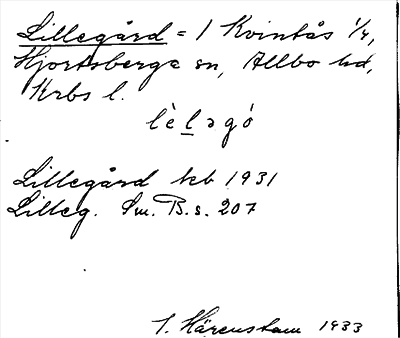 Lillegård = 1 Kvintås 1/4,
Hjortsberga sn, Allbo hd,
Krbs l.
lèləgó
Lillegård kb 1931
Lilleg. Sm. B. s. 207
I. Härenstam 1933